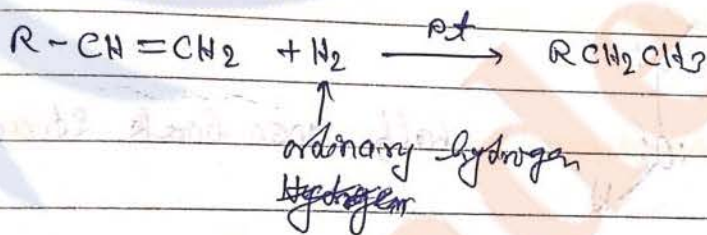 R-CH=CH2 + H2 ⟶ RCH2CH3
Pt
↑
ordinary hydrogen
Hydrogen